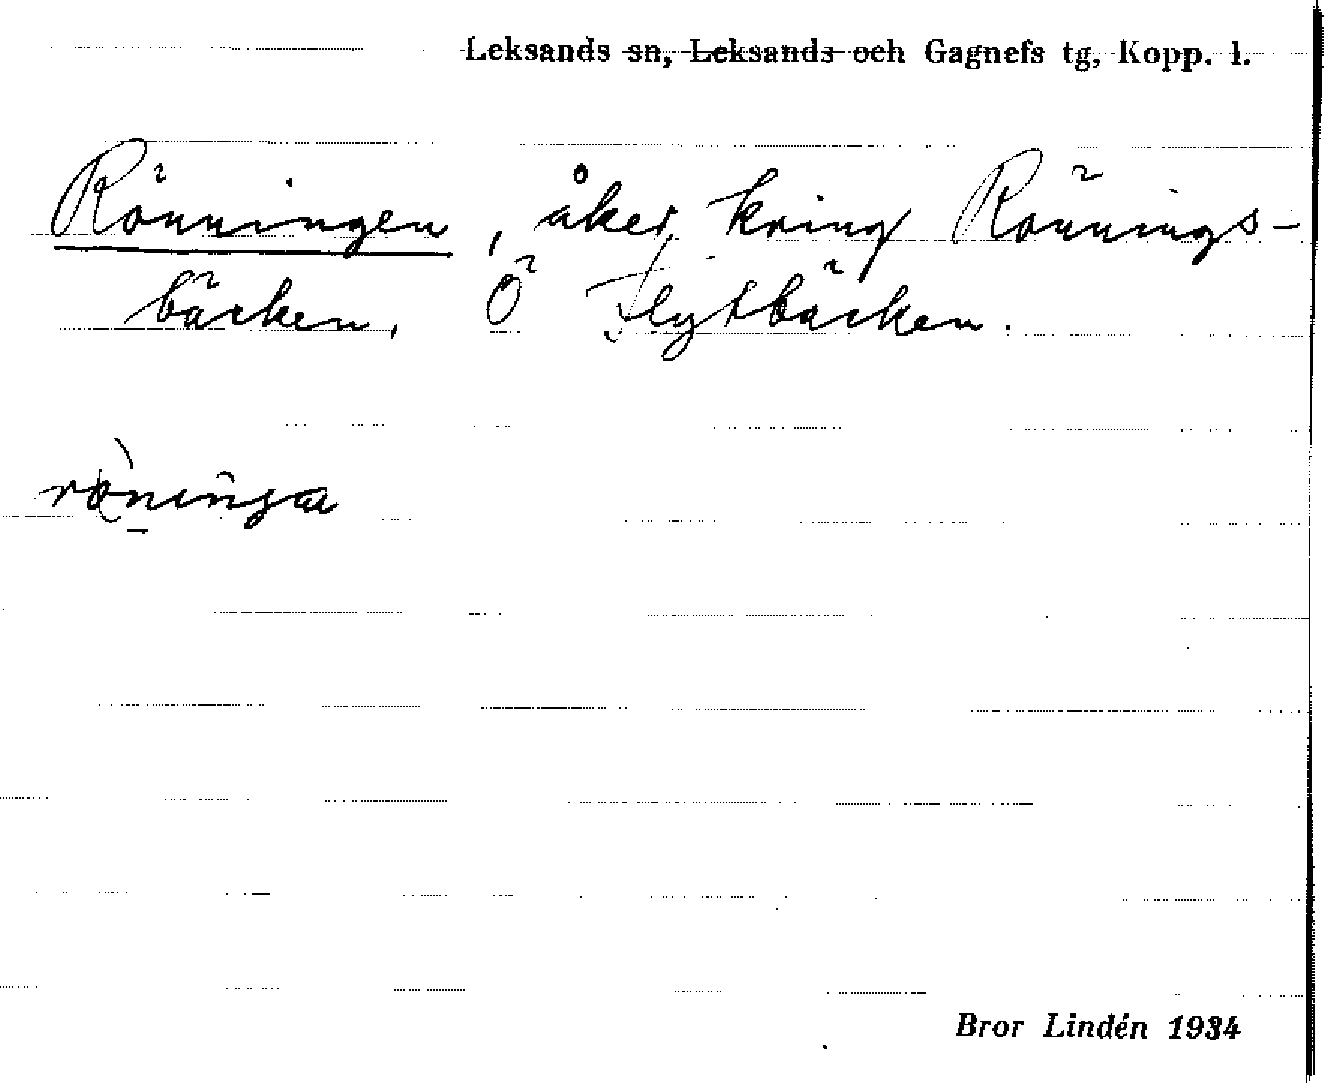 Leksands sn, Leksands och Gagnefs tg, Kopp. l.
Rönningen, åker kring Rönnings-
bäcken, Ö Flytbäcken.
Bror Lindén 1934